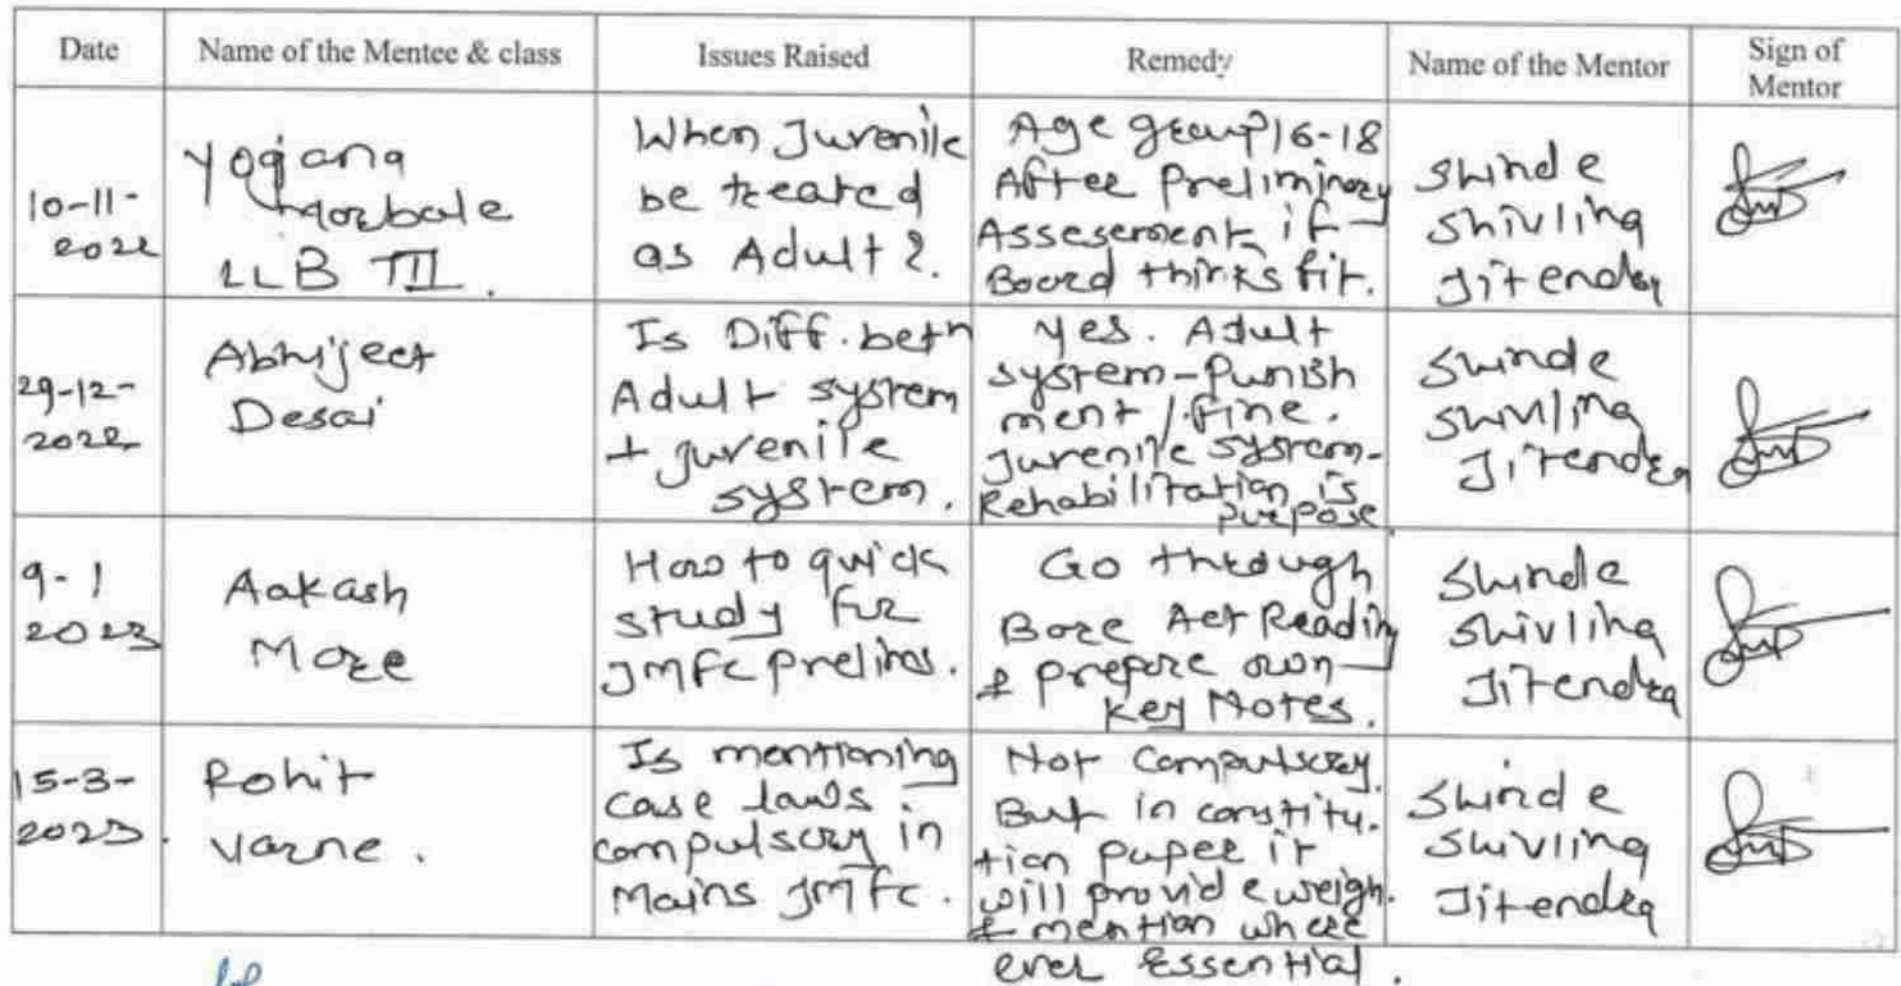 Date | Name of the Mentee & class | Issues Raised | Remedy | Name of the Mentor | Sign of Mentor
10-11-
2022
Yogiana
LLB III.
When Juvenile
be treated
as Adult?.
Age group 16-18
After Preliminary
Assesement if
Board thinks fit.
Shinde
Shivling
Jitendra
29-12-
2022
Abhijeet
Desai
Is Diff. betn
Adult system
+ juvenile
system.
Yes. Adult
system-Punish
ment / Fine.
Juvenile system-
Rehabilitation is
purpose.
Shinde
Shivling
Jitendra
9-1
2023
Aakash
More
How to quick
study for
JMFC prelims.
Go through
Bare Act Reading
& prepare own
key Notes.
Shinde
Shivling
Jitendra
15-3-
2023.
Rohit
Varne.
Is mentioning
case laws
compulsory in
Mains JMFC.
Not Compulsory.
But in constitu-
tion paper it
will provide weigh.
& mention where
ever Essential.
Shinde
Shivling
Jitendra